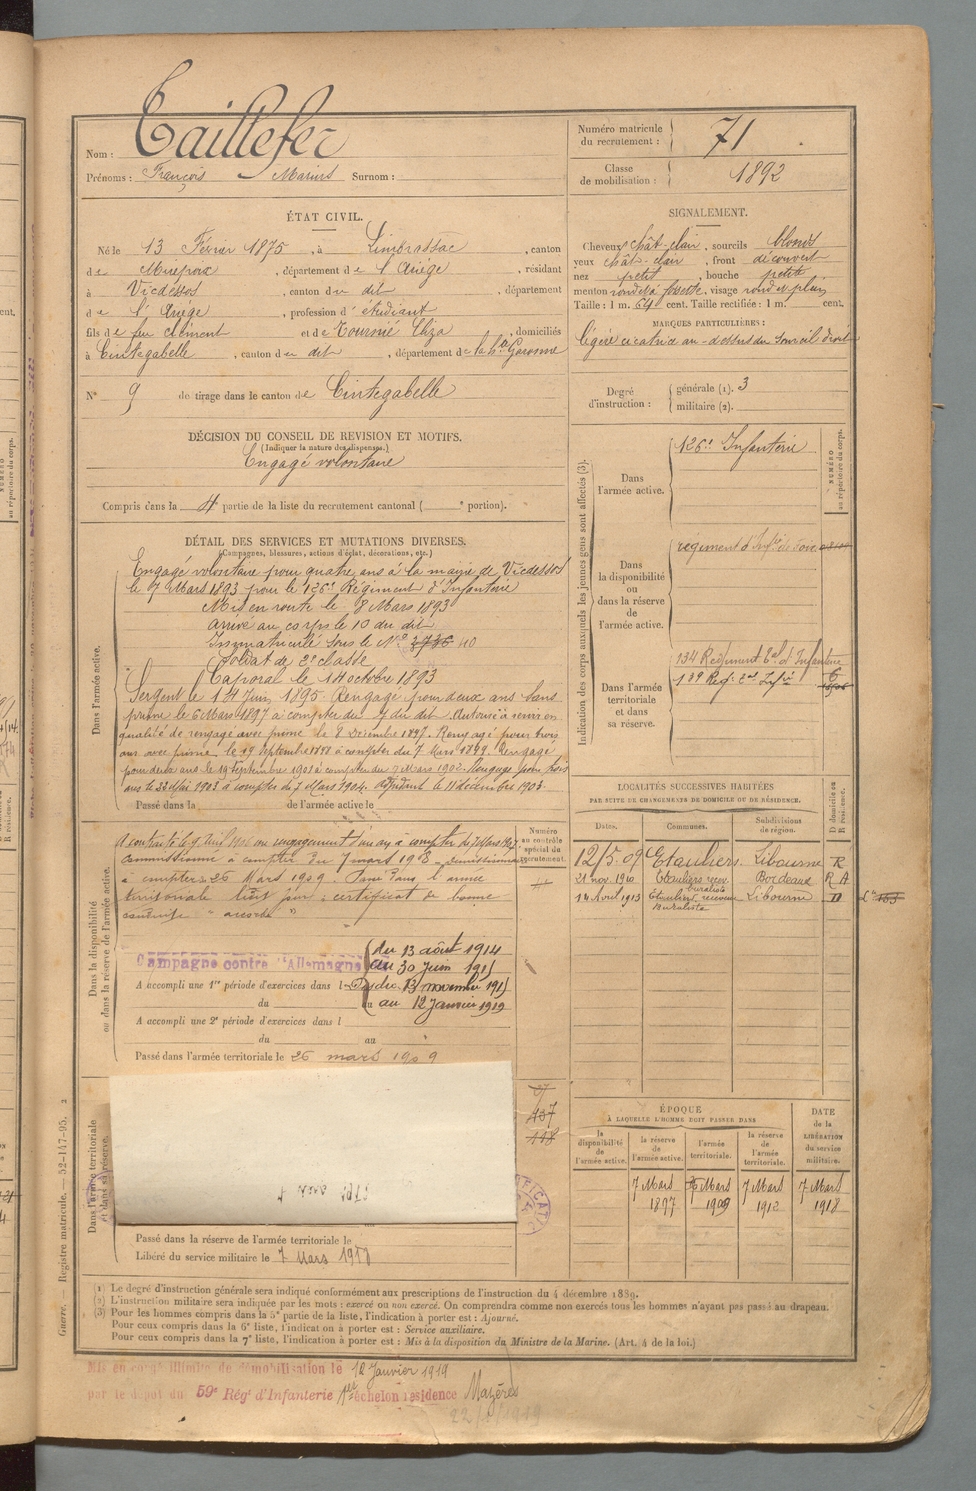 Nom : Taillefer
Prénoms : François Marius Surnom :
Numéro matricule du recrutement : 71
Classe de mobilisation : 1892
ÉTAT CIVIL.
Né le 13 Février 1875, à Limbrassac, canton
de Mirepoix, département de l'Ariége, résidant
à Vicdessos, canton du dit, département
de l'Ariége, profession d'étudiant
fils de feu Clément et de Tournié Eliza, domiciliés
à Cintegabelle, canton du dit, département de la Hte Garonne
N° 9 de tirage dans le canton de Cintegabelle
SIGNALEMENT.
Cheveux chât-clair, sourcils blonds
yeux chât-clair, front découvert
nez petit, bouche petite
menton rond et à fossette, visage rond et plein
Taille : 1 m. 64 cent. Taille rectifiée : 1 m. cent.
MARQUES PARTICULIÈRES :
légère cicatrice au-dessus du sourcil droit
Degré d'instruction : générale (1). 3
militaire (2).
DÉCISION DU CONSEIL DE REVISION ET MOTIFS.
(Indiquer la nature des dispenses.)
Engagé volontaire
Compris dans la 4e partie de la liste du recrutement cantonal ( e portion).
DÉTAIL DES SERVICES ET MUTATIONS DIVERSES.
(Campagnes, blessures, actions d'éclat, décorations, etc.)
Dans l'armée active.
Engagé volontaire pour quatre ans à la mairie de Vicdessos
le 7 Mars 1893 pour le 126e Régiment d'Infanterie
Mis en route le 8 Mars 1893
Arrivé au corps le 10 du dit
Immatriculé sous le N° 3736 40
Soldat de 2e classe
Caporal le 14 octobre 1893
Sergent le 14 Juin 1895. Rengagé pour deux ans sans
prime le 6 Mars 1897 à compter du 7 du dit. Autorisé à servir en
qualité de rengagé avec prime le 8 Décembre 1897. Rengagé pour trois
ans avec prime le 19 Septembre 1898 à compter du 7 Mars 1899. Rengagé
pour deux ans le 19 Septembre 1901 à compter du 7 Mars 1902. Rengagé pour trois
ans le 22 Mai 1903 à compter du 7 Mars 1904. Adjudant le 11 décembre 1903.
Passé dans la de l'armée active le
Indication des corps auxquels les jeunes gens sont affectés (3).
NUMÉRO au répertoire du corps.
Dans l'armée active.
126e Infanterie
Dans la disponibilité ou dans la réserve de l'armée active.
régiment d'Infie de Foix
Dans l'armée territoriale et dans sa réserve.
134 Régiment Tal d'Infanterie
139 Regt Tal Infie
Dans la disponibilité ou dans la réserve de l'armée active.
A contracté le 9 Avril 1906 un rengagement d'un an à compter du 7 Mars 1907
Commissionné à compter du 7 mars 1908 - démissionné
à compter du 26 Mars 1909. Passé dans l'armée
territoriale ledit jour : certificat de bonne
conduite " accordé "
Numéro au contrôle spécial du recrutement.
Campagne contre l'Allemagne
du 13 août 1914
au 30 Juin 1915
A accompli une 1re période d'exercices dans l
du 13 novembre 1915
du au au 12 Janvier 1919
A accompli une 2e période d'exercices dans l
du au
Passé dans l'armée territoriale le 26 mars 1909
LOCALITÉS SUCCESSIVES HABITÉES
PAR SUITE DE CHANGEMENTS DE DOMICILE OU DE RÉSIDENCE.
Dates. Communes. Subdivisions de région. D domicile ou R résidence.
12/5.09 Etauliers Libourne R
21 nov. 1910 Etauliers recev. buraliste Bordeaux R A
14 Avril 1913 Etauliers receveur Buraliste Libourne D
ÉPOQUE
À LAQUELLE L'HOMME DOIT PASSER DANS
la disponibilité de l'armée active.
la réserve de l'armée active.
l'armée territoriale.
la réserve de l'armée territoriale.
DATE de la LIBÉRATION du service militaire.
7 Mars 1897
26 Mars 1909
7 Mars 1912
7 Mars 1918
137
118
Dans l'armée territoriale et dans sa réserve.
Passé dans la réserve de l'armée territoriale le
Libéré du service militaire le 7 Mars 1918
(1) Le degré d'instruction générale sera indiqué conformément aux prescriptions de l'instruction du 4 décembre 1889.
(2) L'instruction militaire sera indiquée par les mots : exercé ou non exercé. On comprendra comme non exercés tous les hommes n'ayant pas passé au drapeau.
(3) Pour les hommes compris dans la 5e partie de la liste, l'indication à porter est : Ajourné.
Pour ceux compris dans la 6e liste, l'indication à porter est : Service auxiliaire.
Pour ceux compris dans la 7e liste, l'indication à porter est : Mis à la disposition du Ministre de la Marine. (Art. 4 de la loi.)
Guerre. — Registre matricule. — 52-147-95. 2
Mis en congé illimité de démobilisation le 12 Janvier 1919
par le dépôt du 59e Régt d'Infanterie 1er échelon résidence Mazères